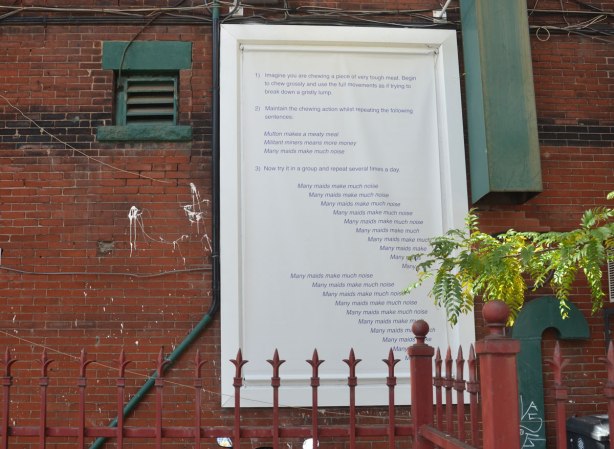 1) Imagine you are chewing a piece of very tough meat. Begin
to chew grossly and use the full movements as if trying to
break down a gristly lump.
2) Maintain the chewing action whilst repeating the following
sentences:
Mutton makes a meaty meal
Militant miners means more money
Many maids make much noise
3) Now try it in a group and repeat several times a day.
Many maids make much noise
Many maids make much noise
Many maids make much noise
Many maids make much noise
Many maids make much noise
Many maids make much
Many maids make much
Many maids make
Many
Many
Many maids make much noise
Many maids make much noise
Many maids make much noise
Many maids make much noise
Many maids make much noise
Many maids make much
Many maids make much
Many maids
Many